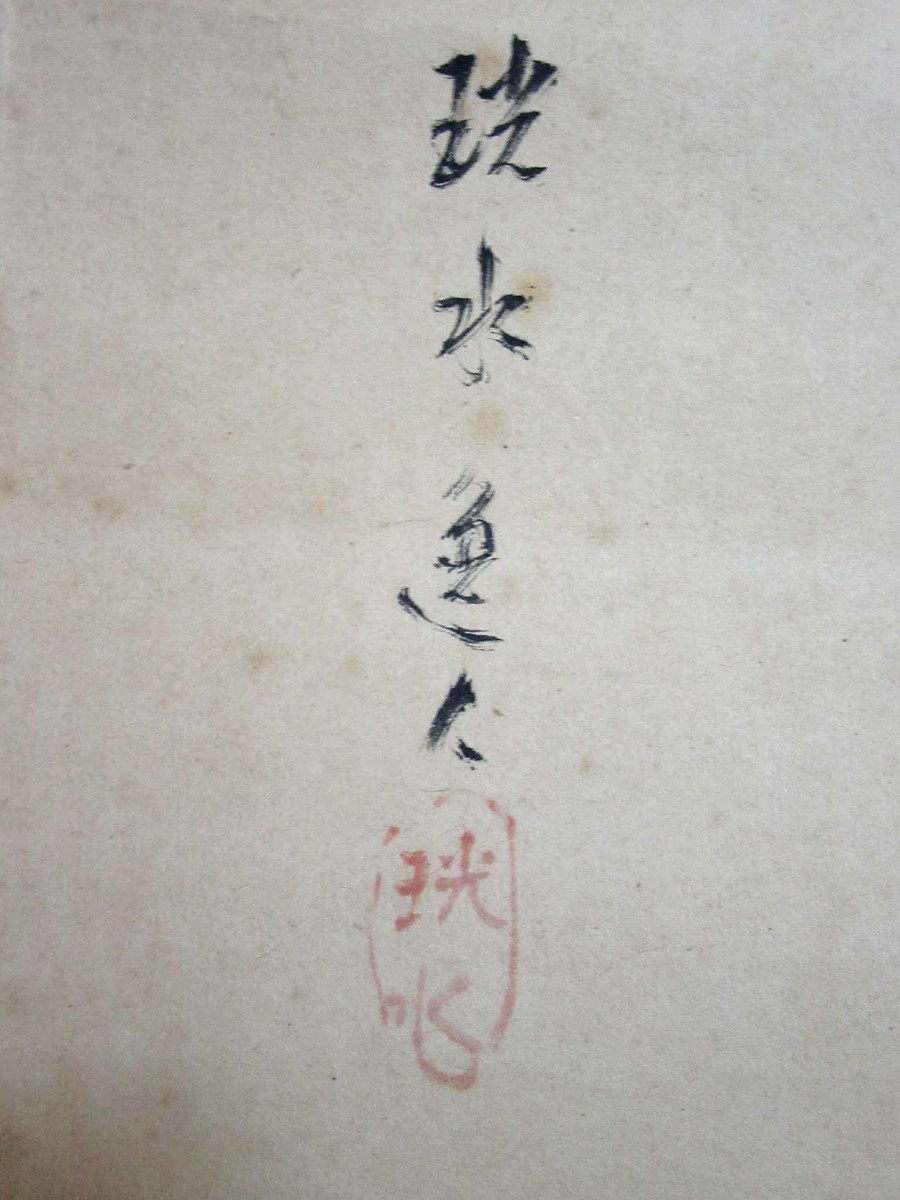 珖水逸人
珖水